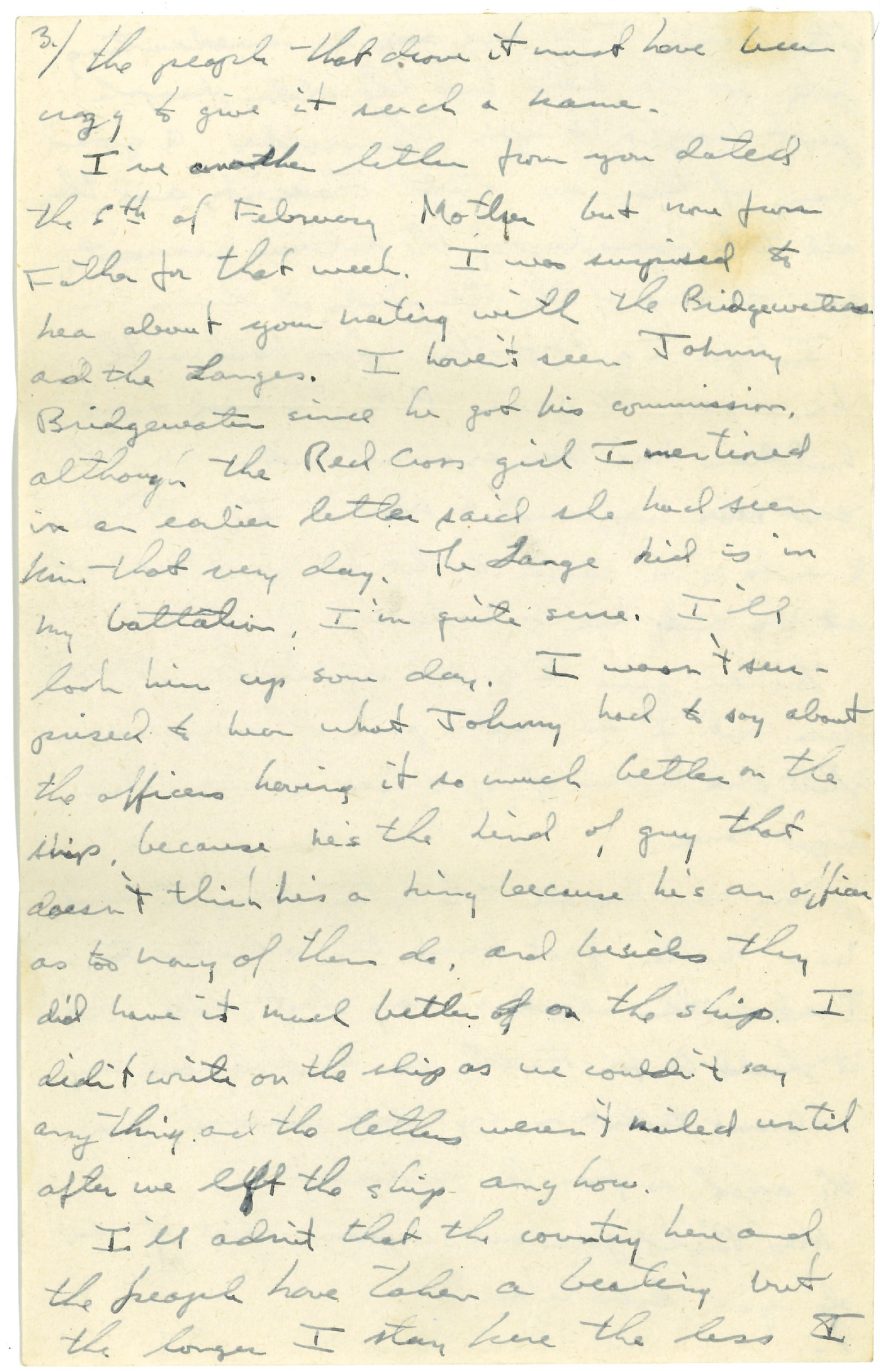 3./ the people that drove it must have been
crazy to give it such a name.
I've another letter from you dated
the 5th of February Mother but none from
Father for that week. I was surprised to
hear about your meeting with the Bridgewaters
and the Langes. I haven't seen Johnny
Bridgewater since he got his commission,
although the Red Cross girl I mentioned
in an earlier letter said she had seen
him that very day. The Lange kid is in
my battalion, I'm quite sure. I'll
look him up some day. I wasn't sur-
prised to hear what Johnny had to say about
the officers having it so much better on the
ship, because he's the kind of guy that
doesn't think he's a king because he's an officer
as too many of them do, and besides they
did have it much better off on the ship. I
didn't write on the ship as we couldn't say
anything and the letters weren't mailed until
after we left the ship any how.
I'll admit that the country here and
the people have taken a beating but
the longer I stay here the less I